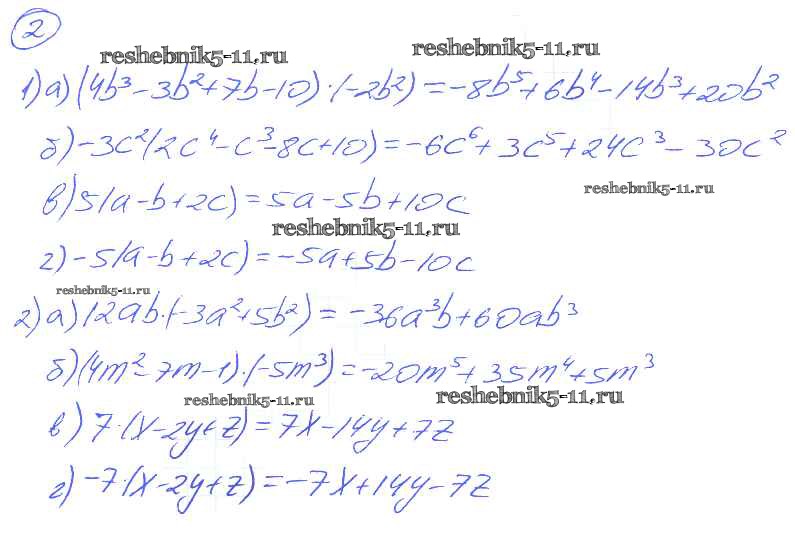 2
reshebnik5-11.ru reshebnik5-11.ru
1) а) (4b³ - 3b² + 7b - 10) · (-2b²) = -8b⁵ + 6b⁴ - 14b³ + 20b²
б) -3c²(2c⁴ - c³ - 8c + 10) = -6c⁶ + 3c⁵ + 24c³ - 30c²
reshebnik5-11.ru
в) 5(a - b + 2c) = 5a - 5b + 10c
reshebnik5-11.ru
г) -5(a - b + 2c) = -5a + 5b - 10c
reshebnik5-11.ru
2) а) 12ab · (-3a² + 5b²) = -36a³b + 60ab³
б) (4m² - 7m - 1) · (-5m³) = -20m⁵ + 35m⁴ + 5m³
reshebnik5-11.ru reshebnik5-11.ru
в) 7 · (x - 2y + z) = 7x - 14y + 7z
г) -7 · (x - 2y + z) = -7x + 14y - 7z